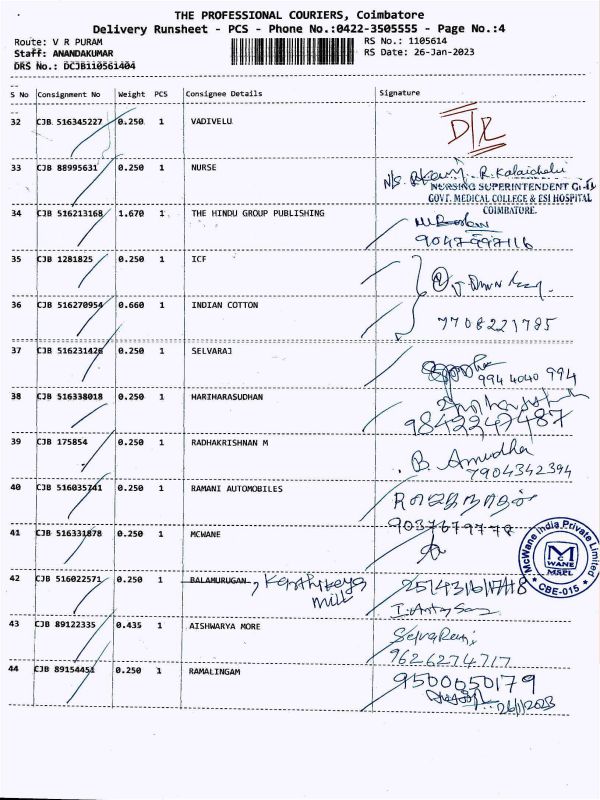 THE PROFESSIONAL COURIERS, Coimbatore
Delivery Runsheet - PCS - Phone No.:0422-3505555 - Page No.:4
Route: V R PURAM RS No.: 1105614
Staff: ANANDAKUMAR RS Date: 26-Jan-2023
DRS No.: DCJB110561404
S No Consignment No Weight PCS Consignee Details Signature
32 CJB 516345227 0.250 1 VADIVELU D/L
33 CJB 88995631 0.250 1 NURSE N/s. R. Kalaichelvi
NURSING SUPERINTENDENT
GOVT. MEDICAL COLLEGE & ESI HOSPITAL
COIMBATORE.
34 CJB 516213168 1.670 1 THE HINDU GROUP PUBLISHING
9047997116
35 CJB 1281825 0.250 1 ICF
36 CJB 516270954 0.660 1 INDIAN COTTON
7708221785
37 CJB 516231426 0.250 1 SELVARAJ
994 4040 994
38 CJB 516338018 0.250 1 HARIHARASUDHAN
9842247487
39 CJB 175854 0.250 1 RADHAKRISHNAN M B. Anudha
7904342394
40 CJB 516035741 0.250 1 RAMANI AUTOMOBILES
41 CJB 516331878 0.250 1 MCWANE
McWane India Private Limited
MC
WANE
CBE-015
42 CJB 516022571 0.250 1 BALAMURUGAN, Karthikeya
mill
43 CJB 89122335 0.435 1 AISHWARYA MORE
9626274717
44 CJB 89154451 0.250 1 RAMALINGAM 9500050179
26/1/2023